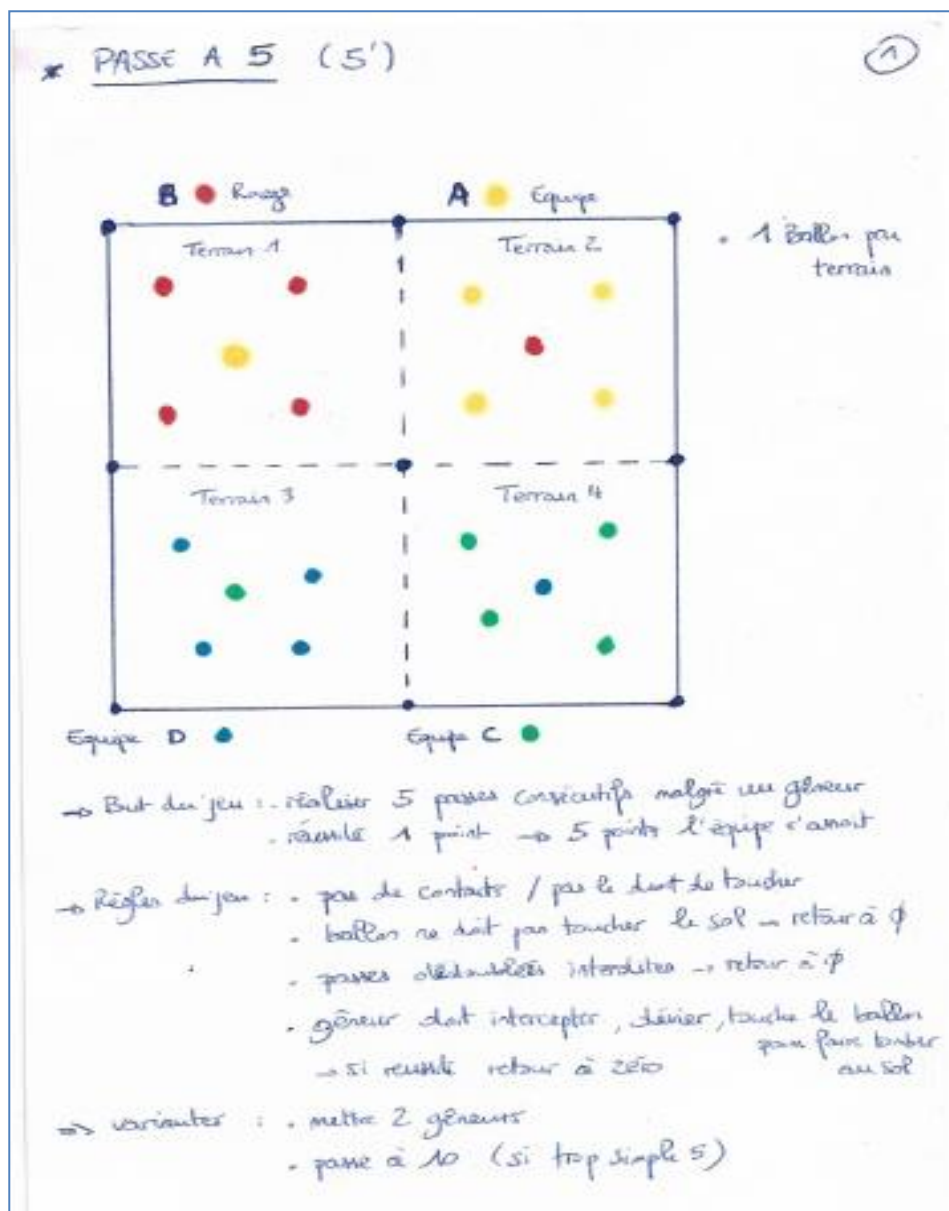 * PASSE A 5 (5')
1
B Rouge
A Equipe
Terrain 1
Terrain 2
. 1 Ballon par
terrain
Terrain 3
Terrain 4
Equipe D
Equipe C
→ But du jeu : . réaliser 5 passes consécutifs malgré un gêneur
. réussité 1 point → 5 points l'équipe s'assoit
→ Règles du jeu : . pas de contacts / pas le droit de toucher
. ballon ne doit pas toucher le sol → retour à φ
. passes dédoublées interdites → retour à φ
. gêneur doit intercepter, dévier, touche le ballon
pour faire tomber
→ si réussité retour à zéro
au sol
⇒ variantes : . mettre 2 gêneurs
. passe à 10 (si trop simple 5)